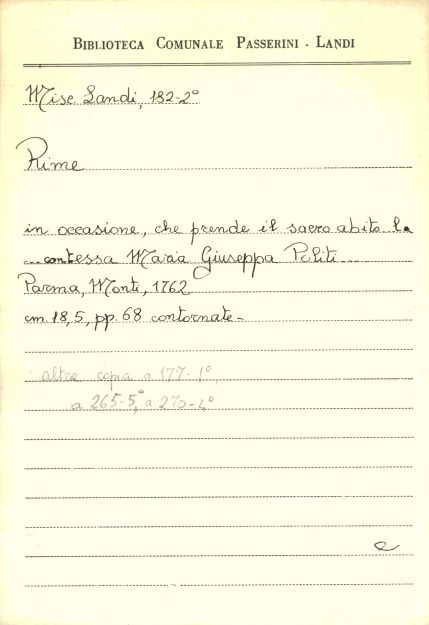 BIBLIOTECA COMUNALE PASSERINI - LANDI
Misc Landi, 182-2°
Rime
in occasione, che prende il sacro abito la
contessa Maria Giuseppa Politi
Parma, Monti, 1762
cm 18,5, pp. 68 contornate-
altre copia a 177-1°,
a 265-5°, a 270-4°
e